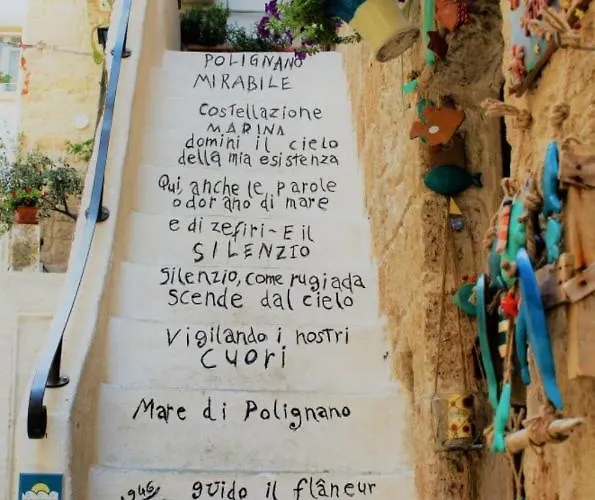 POLIGNANO
MIRABILE
Costellazione
MARINA
domini il cielo
della mia esistenza
Qui, anche le parole
odorano di mare
e di zefiri - E il
SILENZIO
Silenzio, come rugiada
Scende dal cielo
Vigilando i nostri
Cuori
Mare di Polignano
guido il flâneur